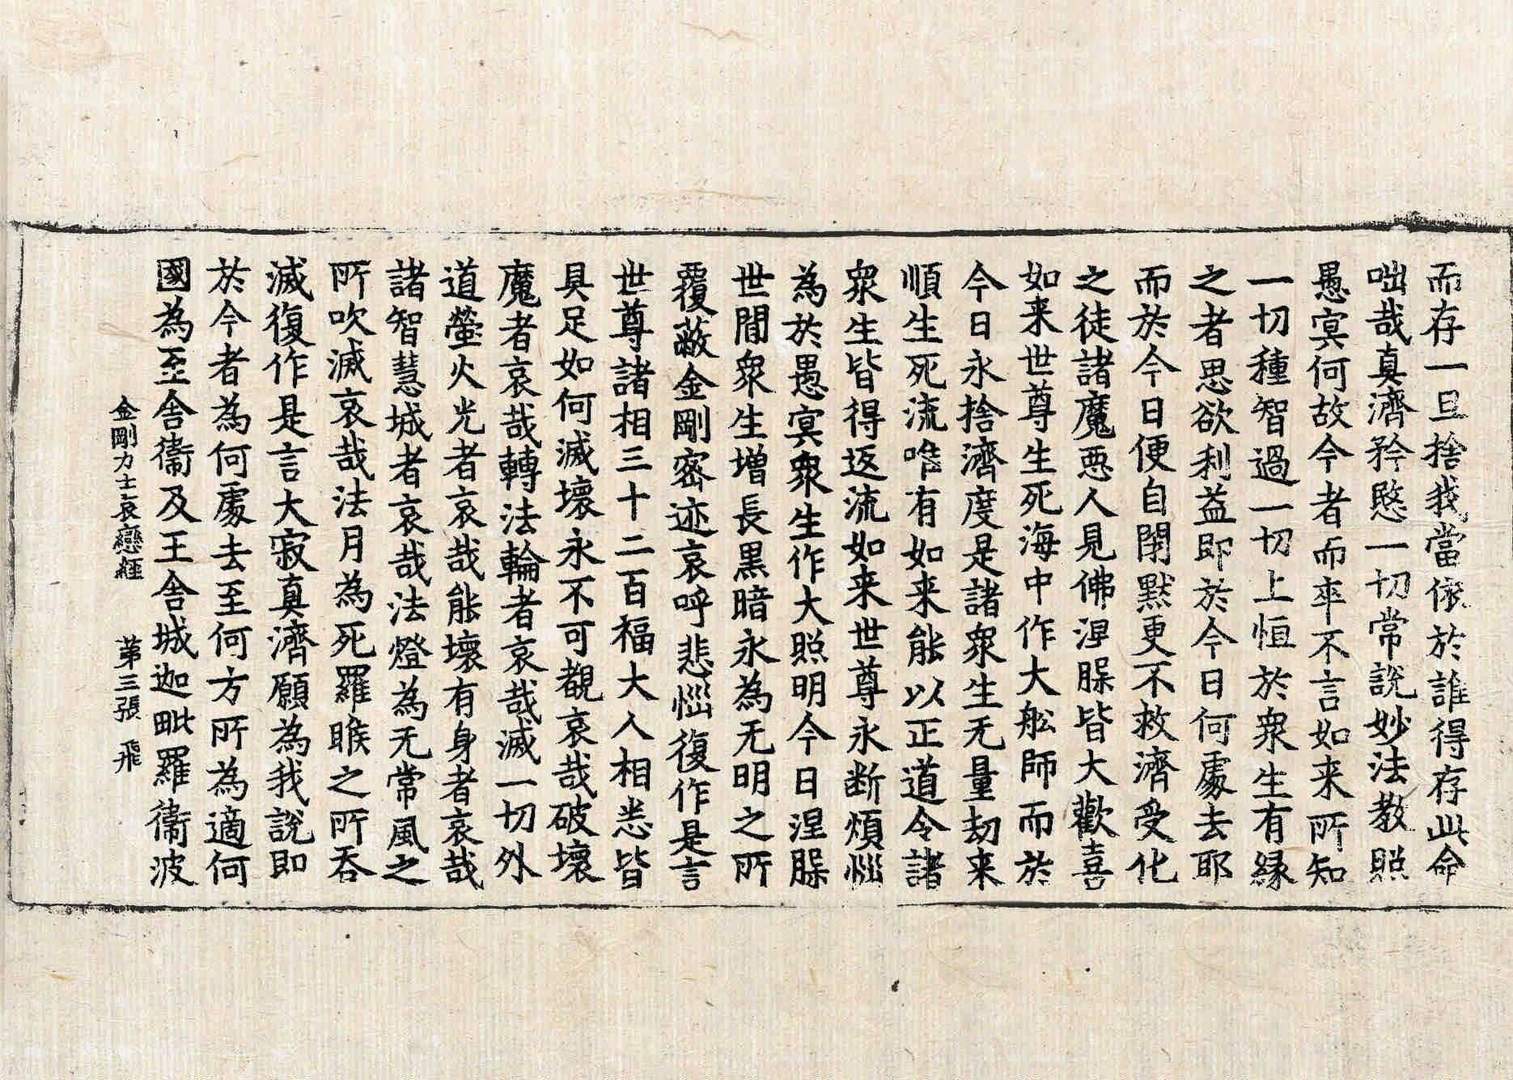 而存一旦捨我當依於誰得存此命
咄哉真濟矜愍一切常說妙法教照
愚㝠何故今者而卒不言如来所知
一切種智過一切上恒於衆生有縁
之者思欲利益即於今日何處去耶
而於今日便自閇默更不救濟受化
之徒諸魔惡人見佛涅槃皆大歡喜
如来世尊生死海中作大舩師而於
今日永捨濟度是諸衆生无量劫来
順生死流唯有如来能以正道令諸
衆生皆得返流如来世尊永断煩惱
為於愚㝠衆生作大照明今日涅槃
世間衆生增長黑暗永為无明之所
覆蔽金剛密迹哀呼悲惱復作是言
世尊諸相三十二百福大人相悉皆
具足如何滅壞永不可覩哀哉破壞
魔者哀哉轉法輪者哀哉滅一切外
道螢火光者哀哉能壞有身者哀哉
諸智慧城者哀哉法燈為无常風之
所吹滅哀哉法月為死羅睺之所吞
滅復作是言大寂真濟願為我說即
於今者為何處去至何方所為適何
國為至舍衞及王舍城迦毗羅衞波
金剛力士哀戀經 第三張 飛